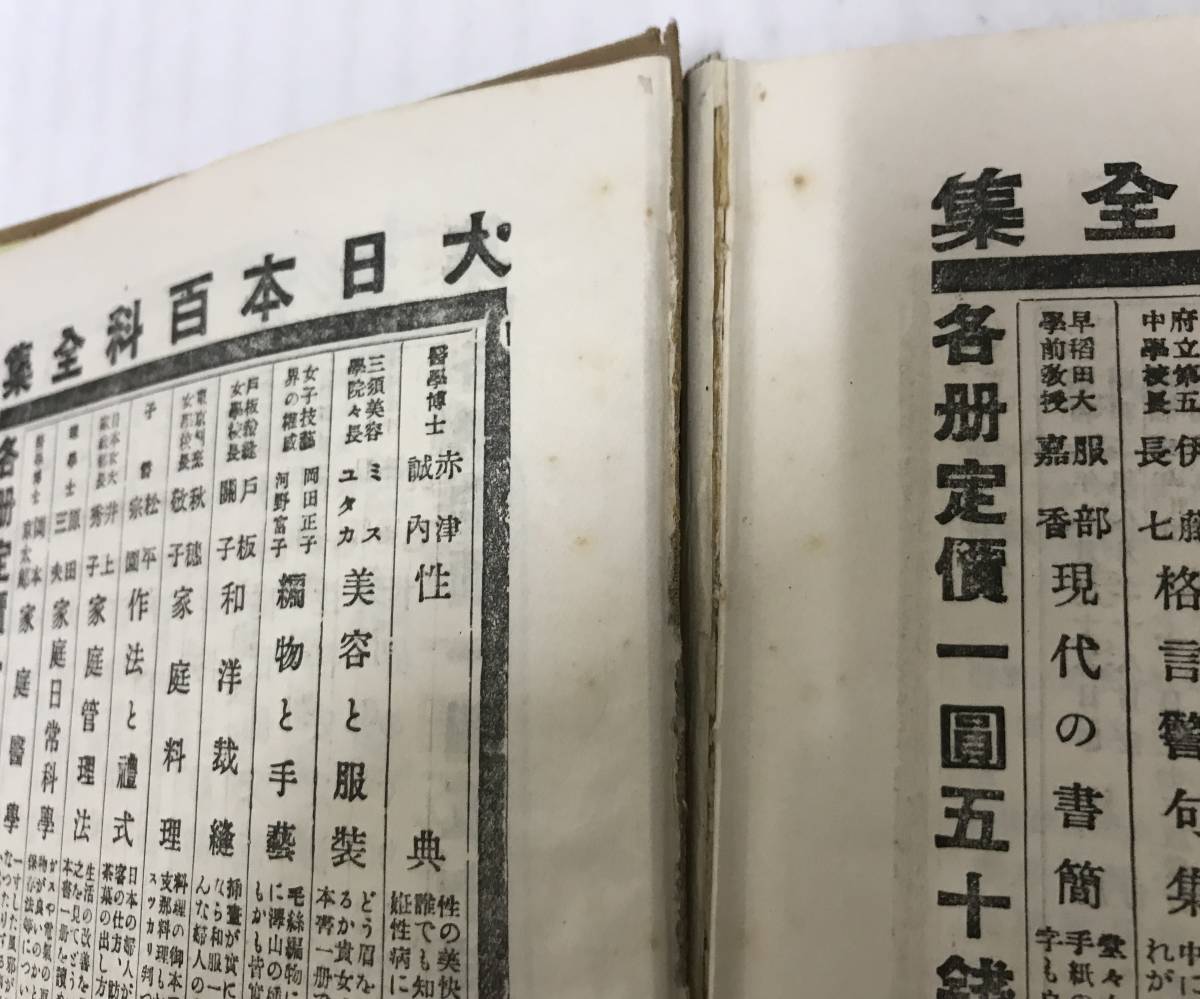 全集
府立第五
中學校長
伊藤
長七
格言警句集
中に
れが
早稻田大
學前教授
服部
嘉香
現代の書簡
堂々
手紙の
字も
各册定價一圓五十錢
大日本百科全集
醫學博士
赤津
誠内
性典
性の美快
誰でも知
姙性病に
三須美容
學院々長
ミス
ユタカ
美容と服裝
どう眉を
るか貴女
本書一册
女子技藝
界の權威
岡田正子
河野富子
編物と手藝
毛絲編物に
に澤山の
もかも皆
戸板裁縫
女學校長
戸板
關子
和洋裁縫
挿畫が實に
なら和服一
んな婦人の
秋穗
敬子
家庭料理
料理の御本
支那料理も
スッカリ判つ
子爵
松平
宗圓
作法と禮式
日本の婦人が
客の仕方、訪
茶菓の出し方
日本女大
井上
秀子
家庭管理法
生活の改善を
之を見てどう
本書一册を讀
理學士
原田
三夫
家庭日常科學
ガスや電氣の
物が良いのかと
保存法等につい
醫學博士
岡本
京太郎
家庭醫學
各册定價